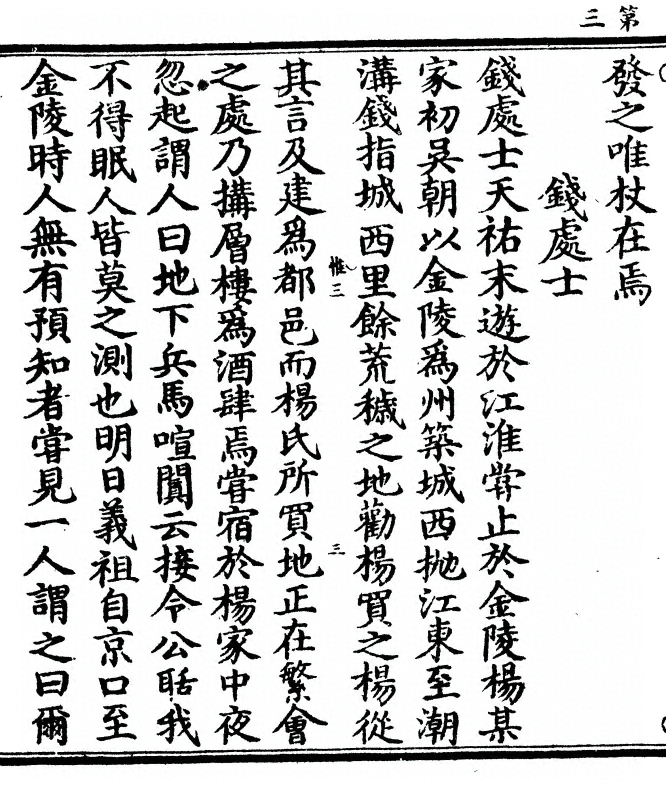 第三
發之唯杖在焉
錢處士
錢處士天祐末遊於江淮甞止於金陵楊某
家初吳朝以金陵爲州築城西抛江東至潮
溝錢指城西里餘荒穢之地勸楊買之楊從
惟三
三
其言及建爲都邑而楊氏所買地正在繁會
之處乃搆層樓爲酒肆焉甞宿於楊家中夜
忽起謂人曰地下兵馬喧闐云接令公聒我
不得眠人皆莫之測也明日義祖自京口至
金陵時人無有預知者甞見一人謂之曰爾